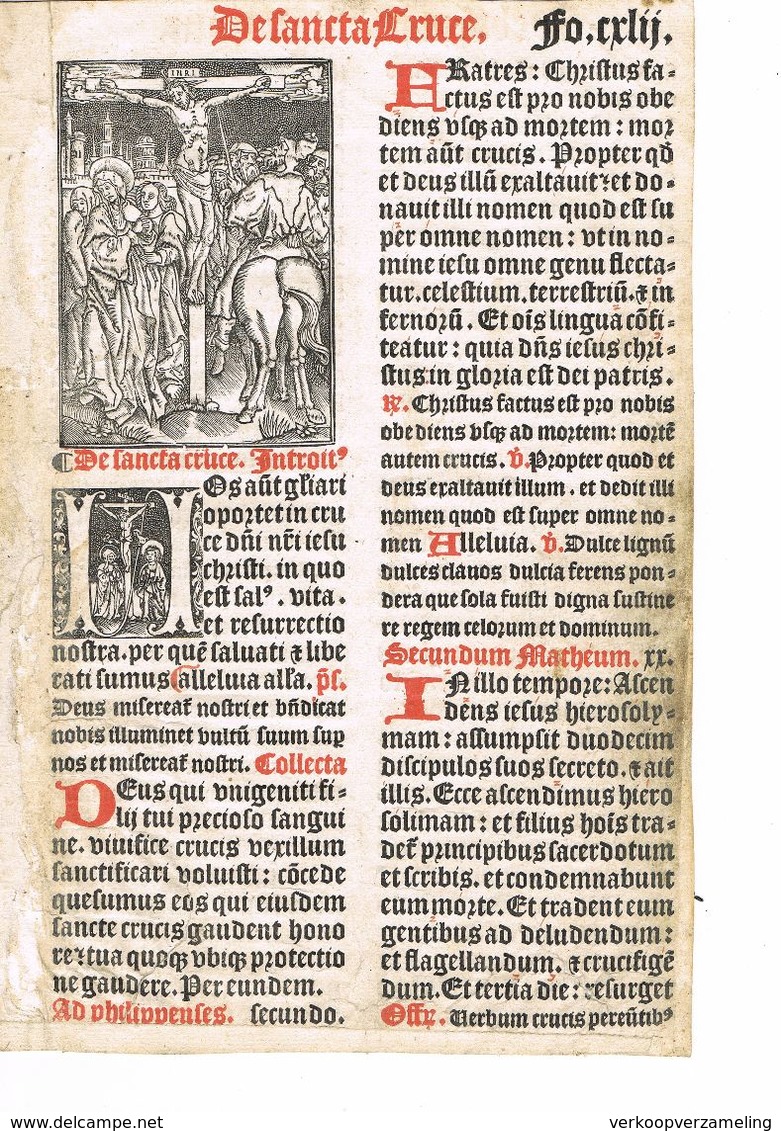 De sancta Cruce. Fo. cxlij.
INRI
¶De sancta cruce. Introitꝰ
NOs aūt gl̄iari
oportet in cru
ce dn̄i nr̄i iesu
christi. in quo
est salꝰ. vita.
et resurrectio
nostra. per quē saluati ⁊ libe
rati sumus alleluia all'a. p̄s.
Deus misereat̄ nostri et bn̄dicat
nobis illuminet vultū suum sup
nos et misereat̄ nostri. Collecta
DEus qui vnigeniti fi=
lij tui precioso sangui
ne. viuifice crucis vexillum
sanctificari voluisti: cōcede
quesumus eos qui eiusdem
sancte crucis gaudent hono
re ⁊ tua quoqꝫ vbiqꝫ protectio
ne gaudere. Per eundem.
Ad philippenses. secundo.
FRatres: Christus fa=
ctus est pro nobis obe
diens vsqꝫ ad mortem: mor
tem aūt crucis. Propter qd̄
et deus illū exaltauit ⁊ et do=
nauit illi nomen quod est su
per omne nomen: vt in no=
mine iesu omne genu flecta=
tur. celestium. terrestriū. ⁊ in
fernorū. Et oīs lingua cōfi=
teatur: quia dn̄s iesus chri=
stus in gloria est dei patris.
℟. Christus factus est pro nobis
obediens vsqꝫ ad mortem: mortē
autem crucis. v̄. Propter quod et
deus exaltauit illum. et dedit illi
nomen quod est super omne no=
men Alleluia. v̄. Dulce lignū
dulces clauos dulcia ferens pon=
dera que sola fuisti digna sustine
re regem celorum et dominum.
Secundum Matheum. xx.
IN illo tempore: Ascen
dēns iesus hierosoly=
mam: assumpsit duodecim
discipulos suos secreto. ⁊ ait
illis. Ecce ascendimus hiero
solimam: et filius hoīs tra=
det̄ principibus sacerdotum
et scribis. et condemnabunt
eum morte. Et tradent eum
gentibus ad deludendum:
et flagellandum. ⁊ crucifigē
dum. Et tertia die: resurget
Offr̄. Uerbum crucis pereūtibꝰ
delcampe.net
verkoopverzameling